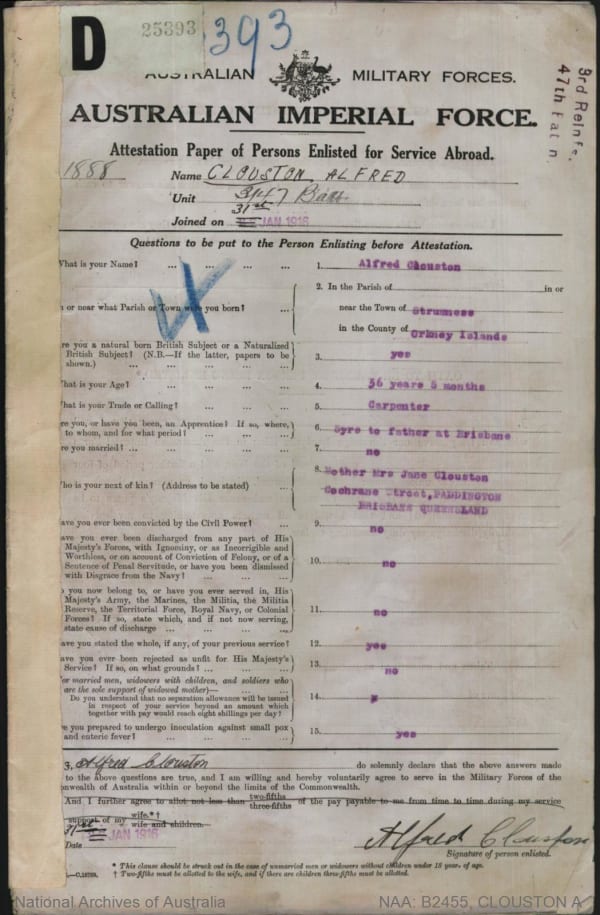 D
25393
393
AUSTRALIAN MILITARY FORCES.
AUSTRALIAN IMPERIAL FORCE.
3rd Reinfs.
47th Bat n.
Attestation Paper of Persons Enlisted for Service Abroad.
1888
Name CLOUSTON, ALFRED
Unit 3/47 Batt.
31st
Joined on JAN 1916
Questions to be put to the Person Enlisting before Attestation.
What is your Name? ... ... ... ... 1. Alfred Clouston
2. In the Parish of in or
n or near what Parish or Town were you born? ... near the Town of Strumness
in the County of Orkney Islands
re you a natural born British Subject or a Naturalized
British Subject? (N.B.—If the latter, papers to be
shown.) ... ... ... ... ... 3. yes
What is your Age? ... ... ... ... 4. 36 years 5 months
hat is your Trade or Calling? ... ... ... 5. Carpenter
re you, or have you been, an Apprentice? If so, where,
to whom, and for what period? ... ... ... 6. 5yrs to father at Brisbane
re you married? ... ... ... ... ... 7. no
ho is your next of kin? (Address to be stated) ... 8. Mother Mrs Jane Clouston
Cochrane Street, PADDINGTON
BRISBANE QUEENSLAND
ave you ever been convicted by the Civil Power? ... 9. no
ave you ever been discharged from any part of His
Majesty's Forces, with Ignominy, or as Incorrigible and
Worthless, or on account of Conviction of Felony, or of a
Sentence of Penal Servitude, or have you been dismissed
with Disgrace from the Navy? ... ... ... 10. no
o you now belong to, or have you ever served in, His
Majesty's Army, the Marines, the Militia, the Militia
Reserve, the Territorial Force, Royal Navy, or Colonial
Forces? If so, state which, and if not now serving,
state cause of discharge ... ... ... ... 11. no
ave you stated the whole, if any, of your previous service? 12. yes
ave you ever been rejected as unfit for His Majesty's
Service? If so, on what grounds? ... ... ... 13. no
For married men, widowers with children, and soldiers who
are the sole support of widowed mother)—
Do you understand that no separation allowance will be issued
in respect of your service beyond an amount which
together with pay would reach eight shillings per day? 14. x
re you prepared to undergo inoculation against small pox
and enteric fever? ... ... ... ... 15. yes
3, Alfred Clouston do solemnly declare that the above answers made
to the above questions are true, and I am willing and hereby voluntarily agree to serve in the Military Forces of the
onwealth of Australia within or beyond the limits of the Commonwealth.
And I further agree to allot not less than two-fifths three-fifths of the pay payable to me from time to time during my service
support of my wife.*† wife and children.
31st JAN 1916
Date
Alfred Clouston
Signature of person enlisted.
* This clause should be struck out in the case of unmarried men or widowers without children under 18 years of age.
† Two-fifths must be allotted to the wife, and if there are children three-fifths must be allotted.
National Archives of Australia NAA: B2455, CLOUSTON A